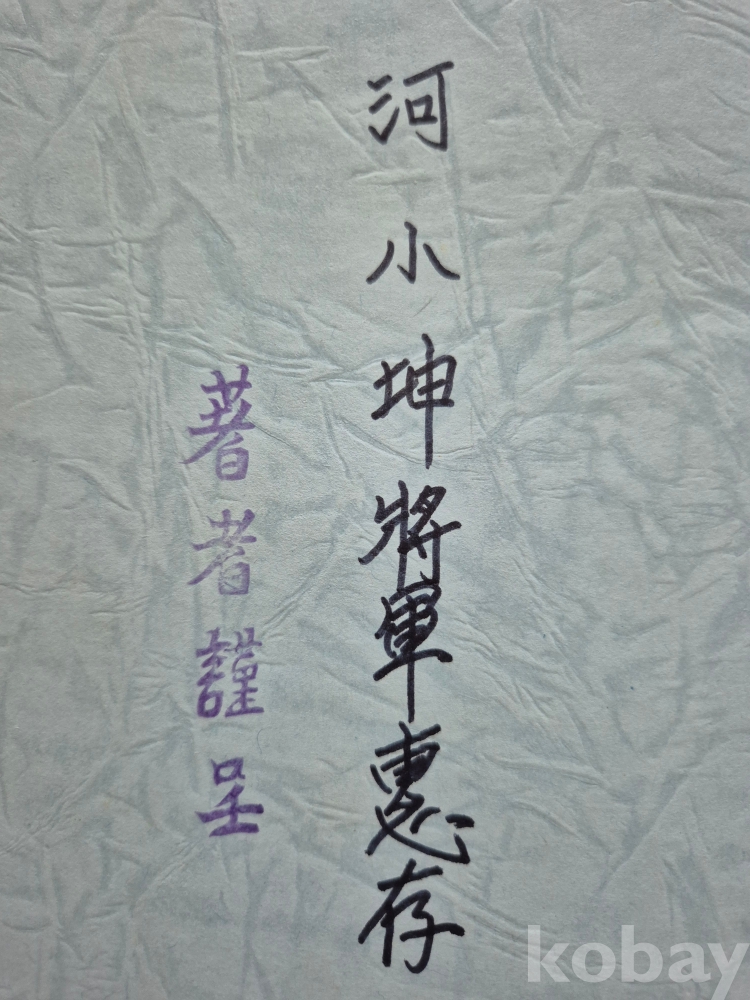 河小坤將軍惠存
著者謹呈
kobay